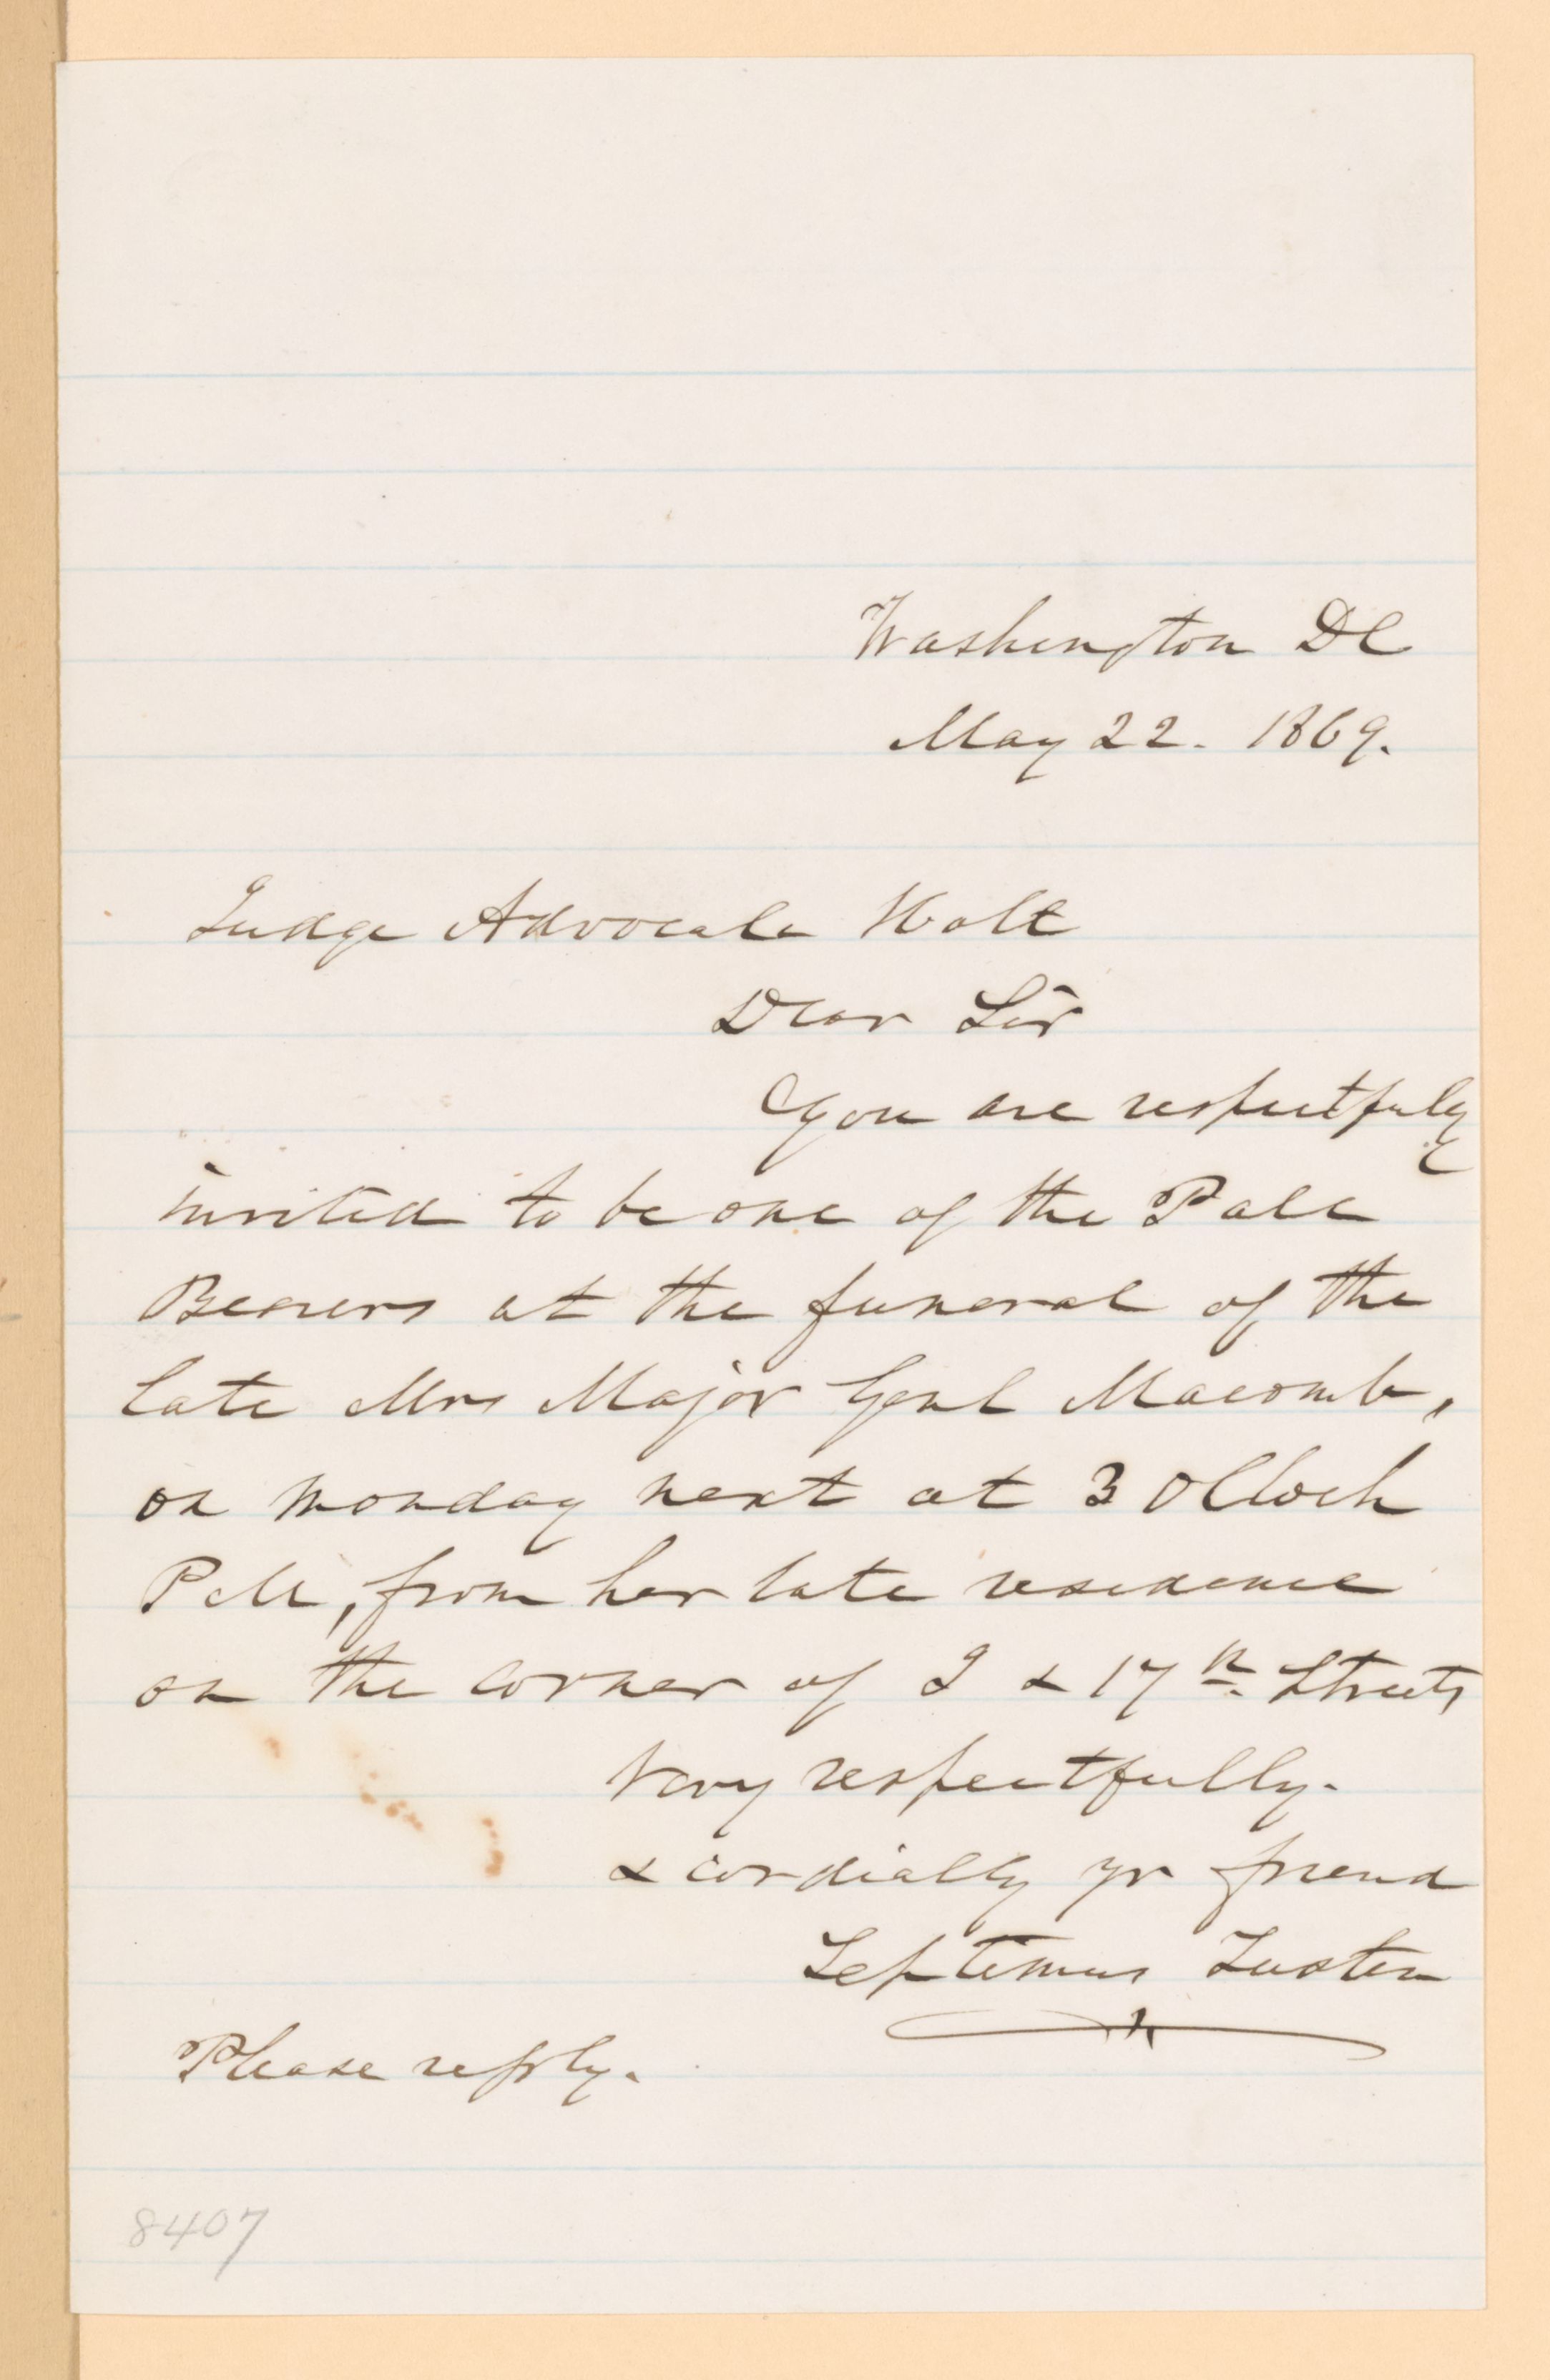 Washington DC
May 22. 1869.
Judge Advocate Holt
Dear Sir
You are respectfuly
invited to be one of the Pall
Bearers at the funeral of the
late Mrs Major Genl Macomb,
on Monday next at 3 OClock
P M, from her late residence
on the corner of I & 17th Streets
Very respectfully.
& cordially yr friend
Septimus Tustin
Please reply.
8407